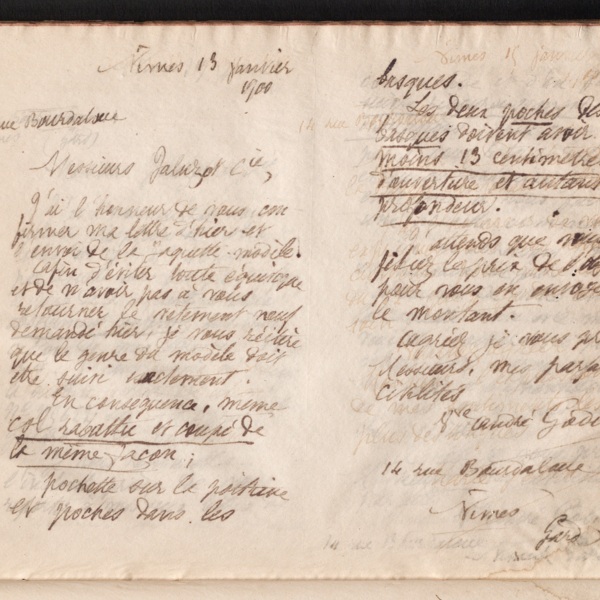 Nîmes, 13 janvier
1900
rue Bourdaloue
Messieurs Jaluzot & Cie,
J'ai l'honneur de vous con
firmer ma lettre d'hier et
l'envoi de la jaquette modèle.
afin d'éviter toute équivoque
et de n'avoir pas à vous
retourner le vêtement neuf
demandé hier, je vous réitère
que le genre du modèle doit
être suivi exactement.
En conséquence, même
col rabattu et coupé de
la même façon ;
pochette sur la poitrine
et poches dans les
basques.
Les deux poches des
basques doivent avoir
moins 13 centimètres
d'ouverture et autant
profondeur.
J'attends que vous
fixiez le prix de
pour vous en envoyer
le montant.
agréez je vous
Messieurs, mes
civilités
Vve André
14 rue Bourdaloue
Nîmes
Gard